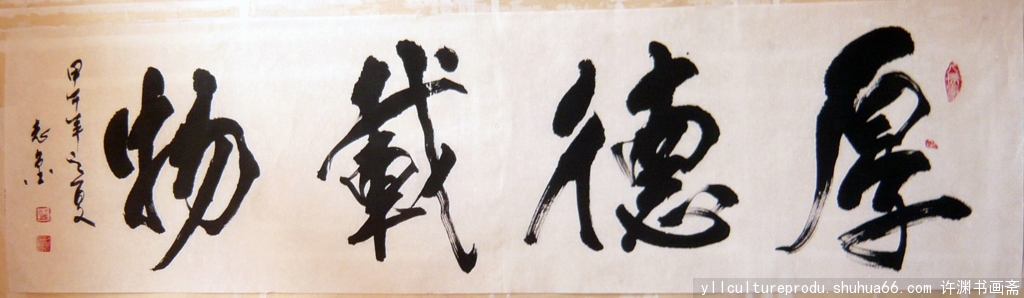 厚德載物
甲午年之夏
yllcultureprodu.shuhua66.com 许渊书画斋